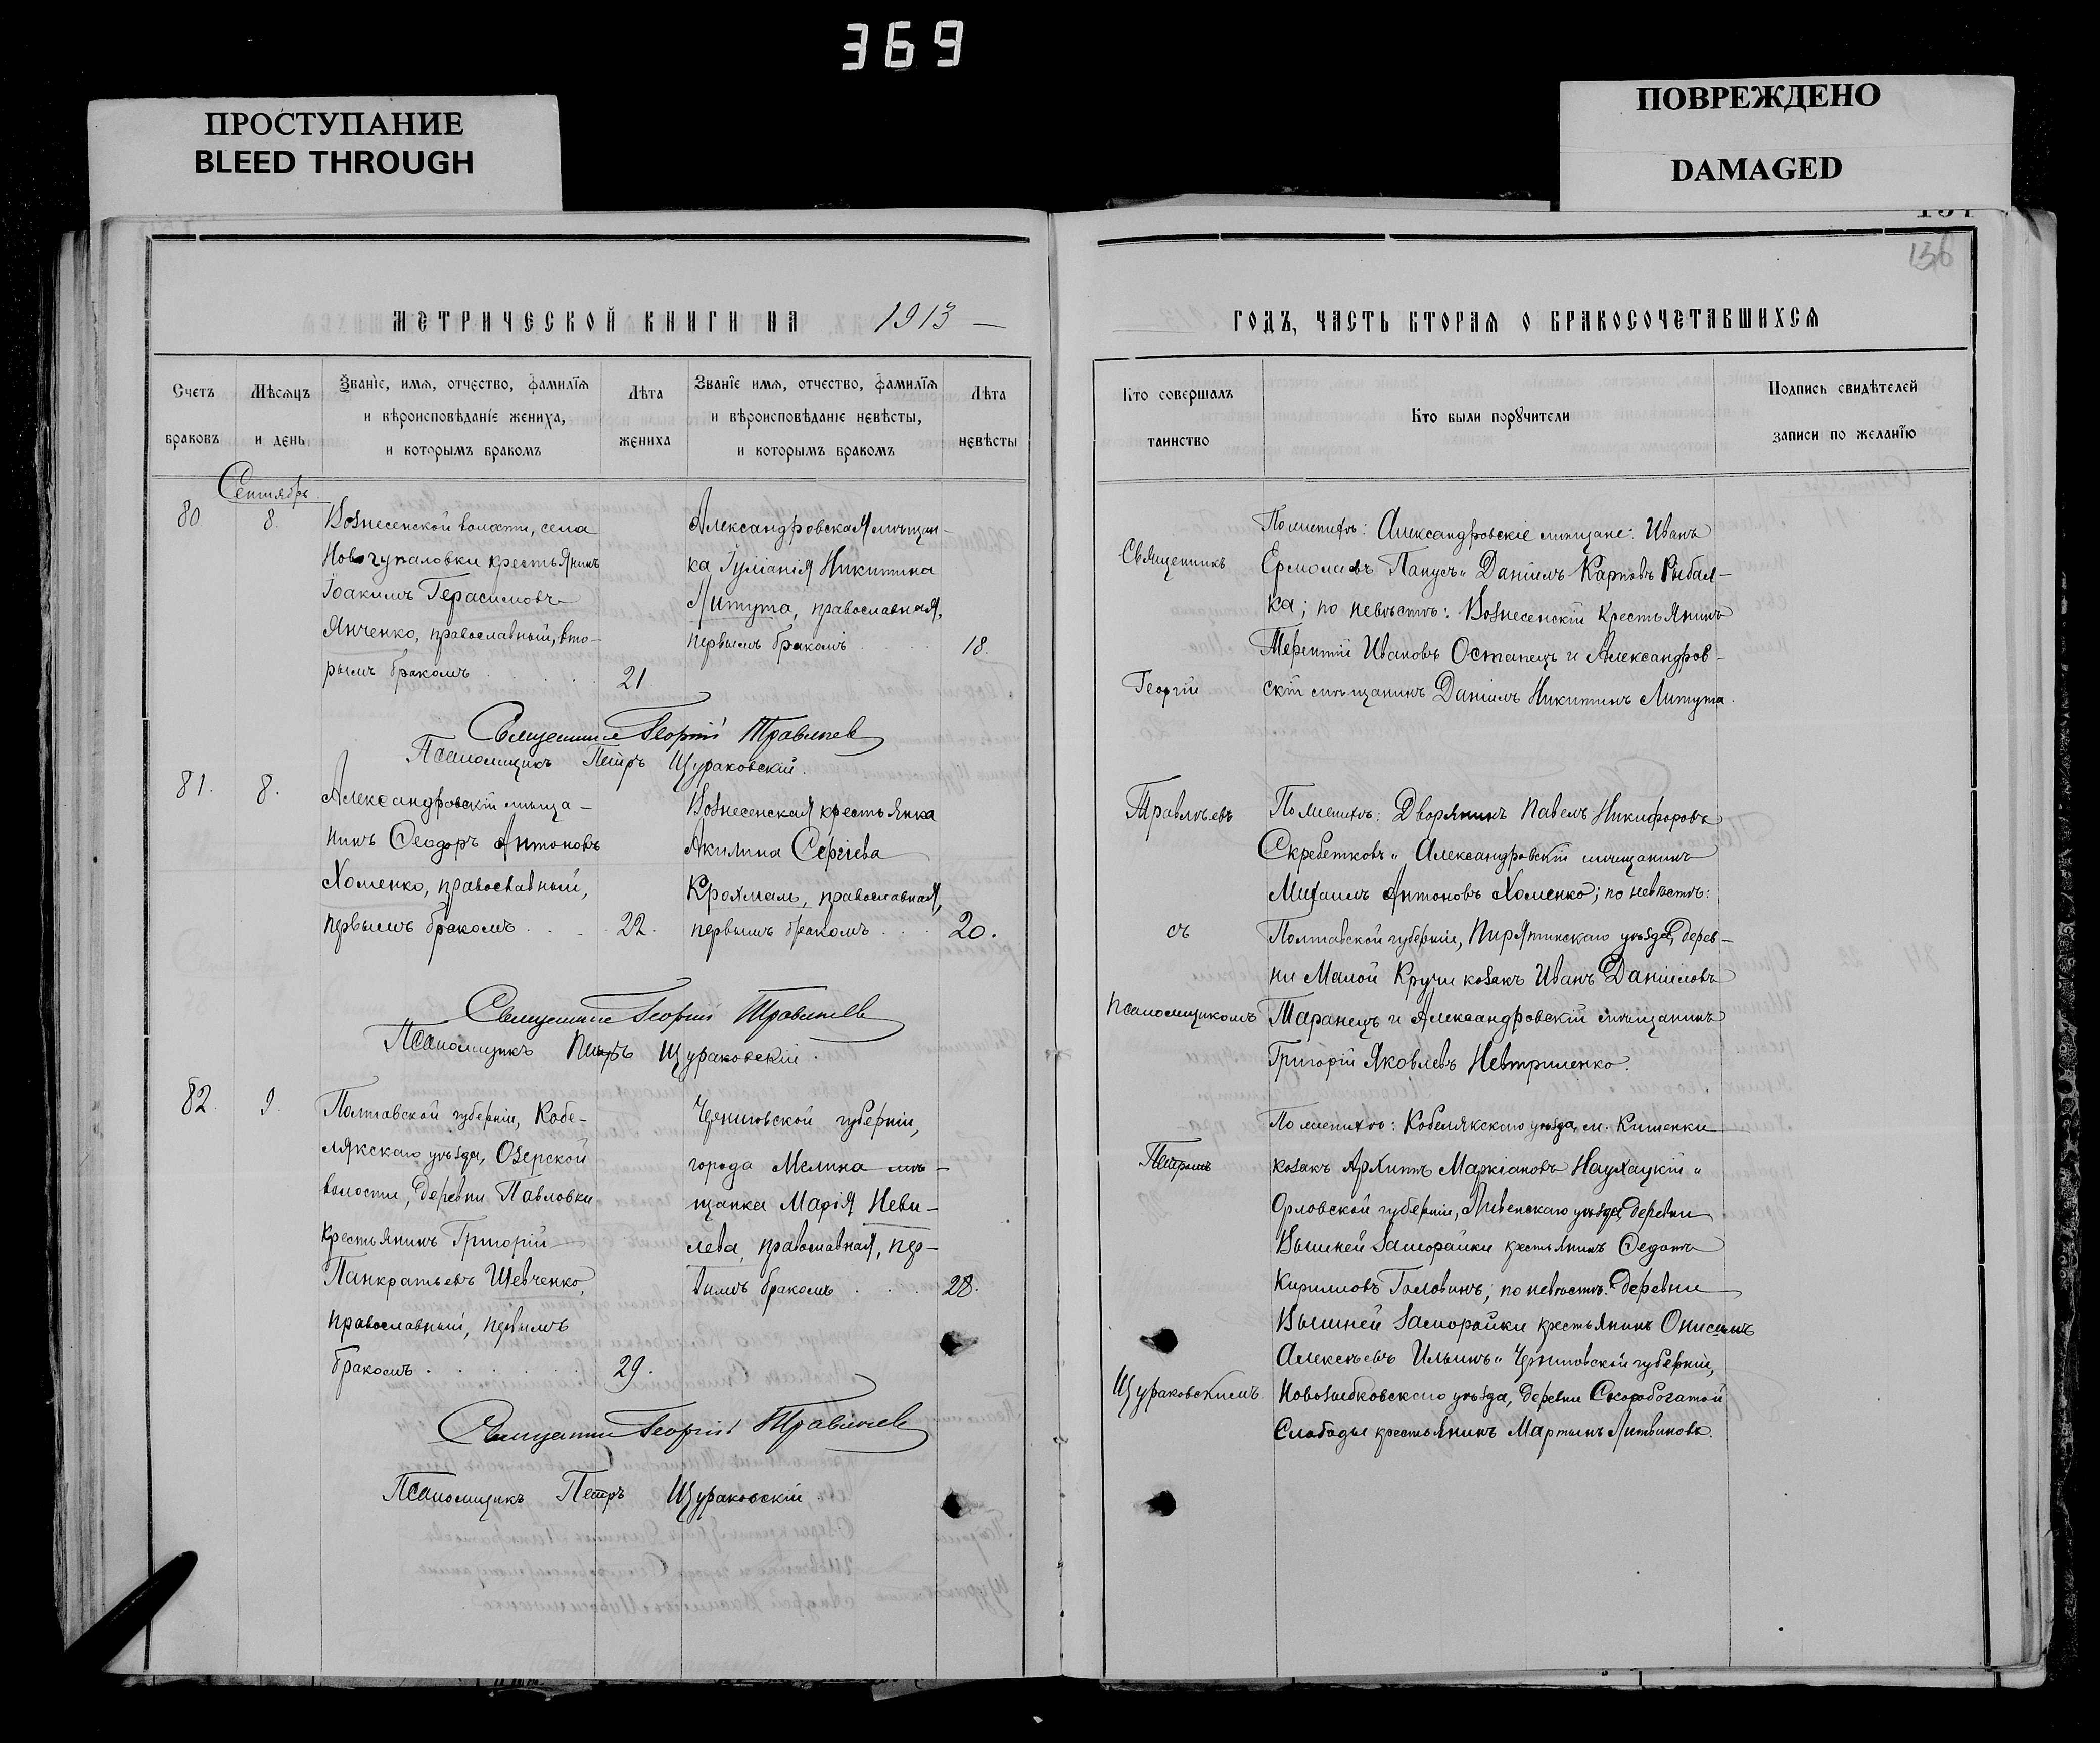 369
ПРОСТУПАНИЕ
BLEED THROUGH
ПОВРЕЖДЕНО
DAMAGED
136
МЕТРИЧЕСКОЙ КНИГИ НА 1913 —
Счетъ браковъ
Мѣсяцъ и день
Званіе, имя, отчество, фамилія
и вѣроисповѣданіе жениха,
и которымъ бракомъ
Лѣта жениха
Званіе имя, отчество, фамилія
и вѣроисповѣданіе невѣсты,
и которымъ бракомъ
Лѣта невѣсты
Сентябрь
80
8.
Вознесенской волости, села
Новогупаловки крестьянинъ
Іоакимъ Герасимовъ
Янченко, православный, вто-
рымъ бракомъ
21
Александровская мѣщан-
ка Іуліанія Никитина
Литута, православная,
первымъ бракомъ
18.
Священникъ Георгій Травлѣев
Псаломщикъ Петръ Щураковскій.
81.
8.
Александровскій мѣща-
нинъ Ѳеодоръ Антоновъ
Хоменко, православный,
первымъ бракомъ
22.
Вознесенская крестьянка
Акилина Сергіева
Крохмаль, православная,
первымъ бракомъ
20.
Священникъ Георгій Травлѣев
Псаломщикъ Петръ Щураковскій.
82.
9.
Полтавской губерніи, Кобе-
лякскаго уѣзда, Озерской
волости, деревни Павловки
крестьянинъ Григорій
Панкратьевъ Шевченко,
православный, первымъ
бракомъ
29.
Черниговской губерніи,
города Мглина мѣ-
щанка Марія Неви-
лева, православная, пер-
вымъ бракомъ
28.
Священникъ Георгій Травлѣев
Псаломщикъ Петръ Щураковскій
ГОДЪ, ЧАСТЬ ВТОРАЯ О БРАКОСОЧЕТАВШИХСЯ
Кто совершалъ таинство
Кто были поручители
Подпись свидѣтелей
записи по желанію
Священникъ
Георгій
Травлѣевъ
съ
псаломщикомъ
Петромъ
Щураковскимъ.
По женихѣ: Александровскіе мѣщане: Иванъ
Ермолаевъ Папусъ и Даніилъ Карповъ Рыбал-
ка; по невѣстѣ: Вознесенскій крестьянинъ
Терентій Ивановъ Остапецъ и Александров-
скій мѣщанинъ Даніилъ Никитинъ Литута.
По женихѣ: Дворянинъ Павелъ Никифоровъ
Скребетковъ и Александровскій мѣщанинъ
Михаилъ Антоновъ Хоменко; по невѣстѣ:
Полтавской губерніи, Пирятинскаго уѣзда, дерев-
ни Малой Кручи козакъ Иванъ Данииловъ
Таранецъ и Александровскій мѣщанинъ
Григорій Яковлевъ Невтриленко.
По женихѣ: Кобелякскаго уѣзда, м. Кишенки
козакъ Архипъ Маркіановъ Наухацкій и
Орловской губерніи, Ливенскаго уѣзда, деревни
Вышней Заморайки крестьянинъ Ѳедотъ
Кирилловъ Головинъ; по невѣстѣ: деревни
Вышней Заморайки крестьянинъ Онисимъ
Алексѣевъ Ильинъ и Черниговской губерніи,
Новозыбковскаго уѣзда, деревни Скоробогатой
Слободы крестьянинъ Мартынъ Литвиновъ.